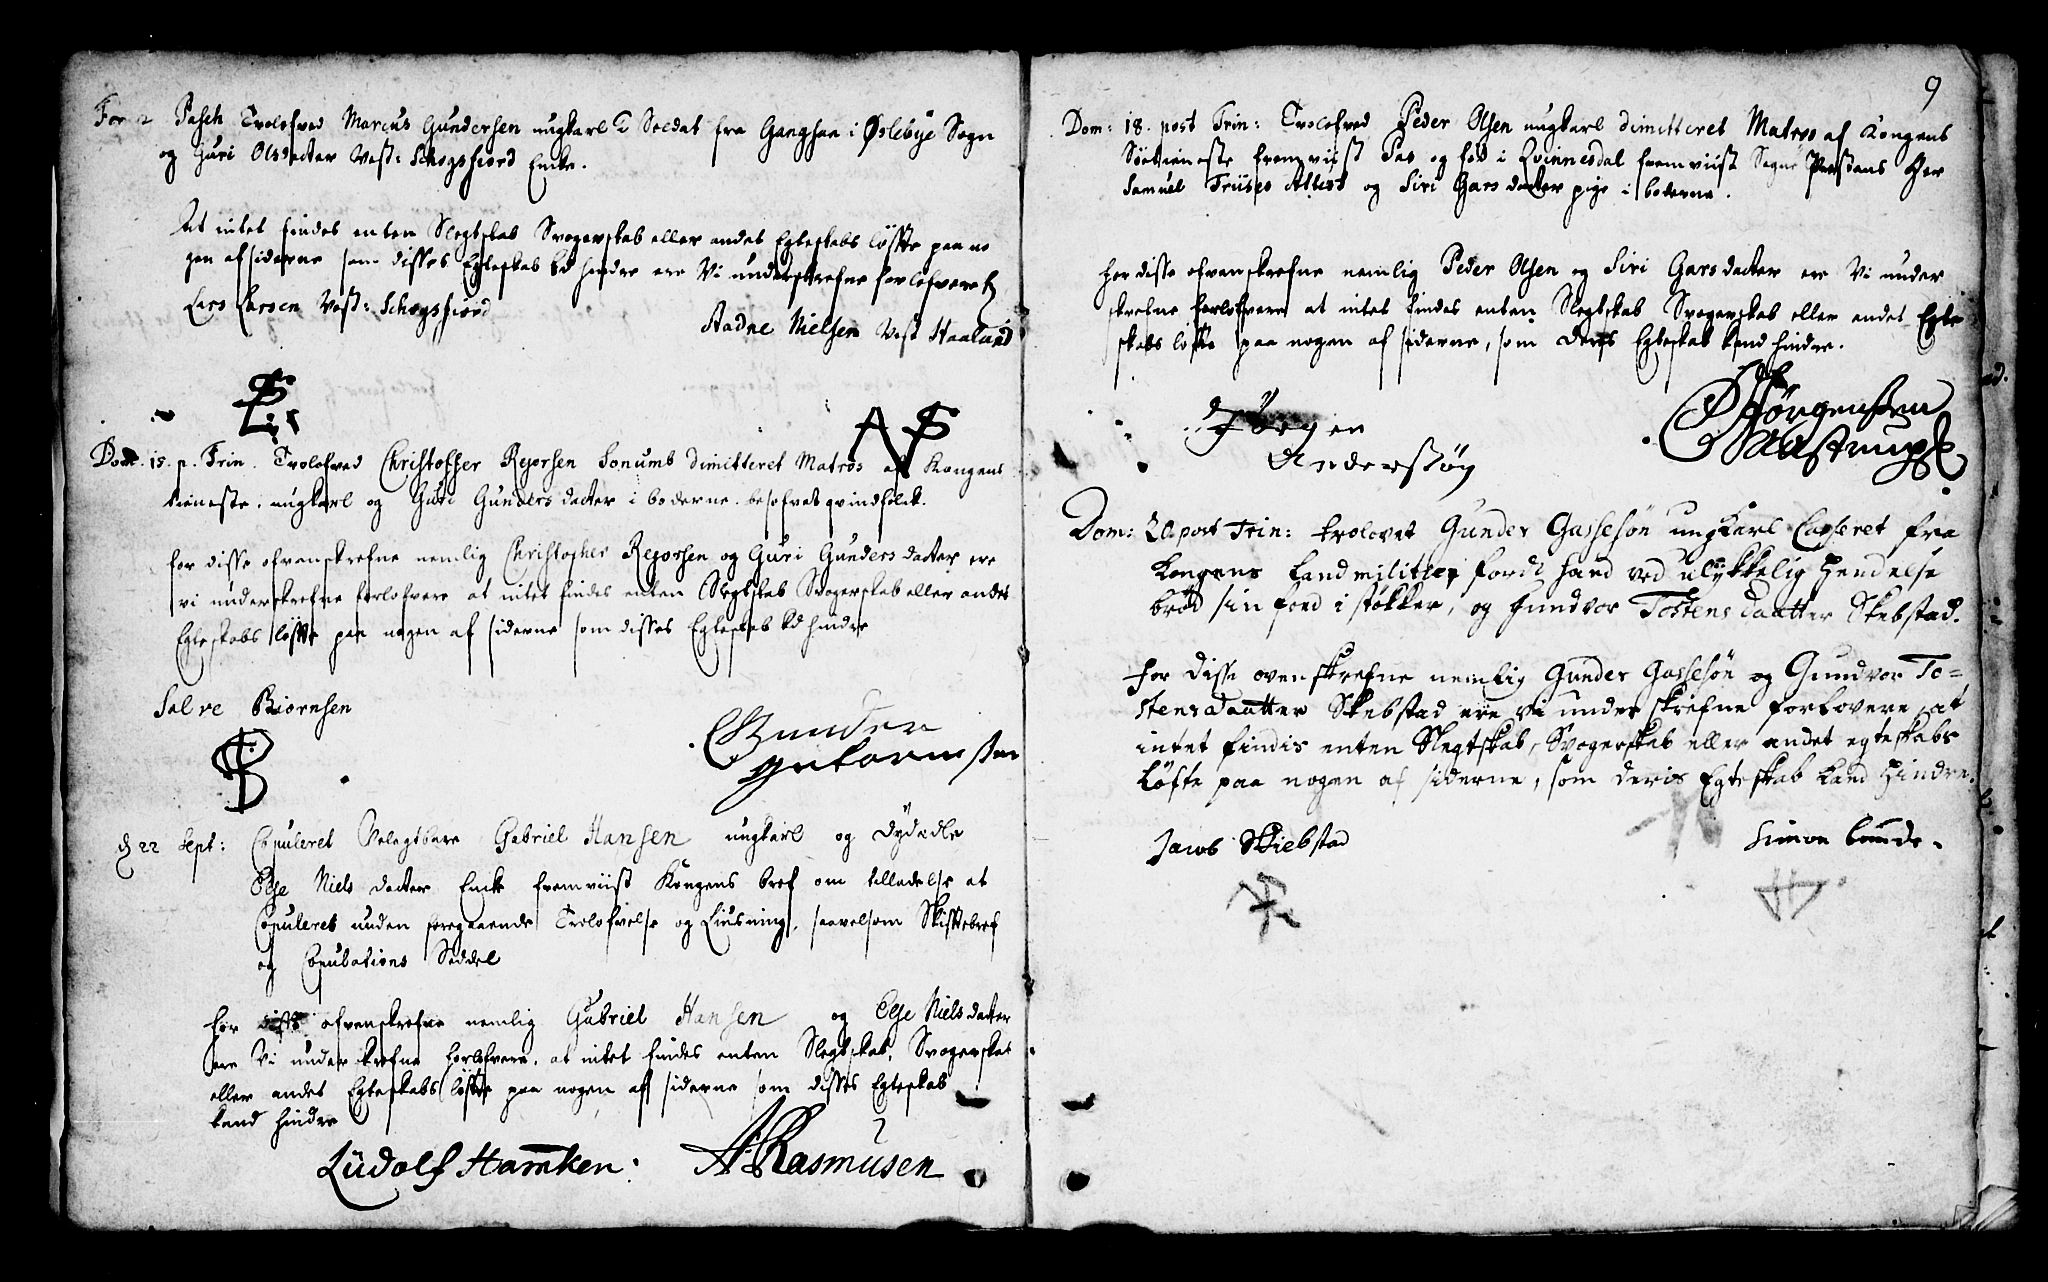 Fer 2 Pasch Trolofved Marcus Gundersen ungkarl Soldat fra Ganghaa i Øslebye Sogn
og Guri Olsdatter Vest: Schogsfiord Enke.
At intet findes enten Slegtskab Svogerskab eller andet Egteskabs løffte paa no
gen af siderne som disses Egteskab kd hindre ere Vi underskrefne forlofvere
Lars Larsen Vest: Schogsfiord
Aadne Nielsen Vest Haaland
Dom. 15. p. Trin. Trolofved Christoffer Rejorsen Sonumb dimitteret Matros af Kongens
tieneste, ungkarl og Guri Gunders datter i boderne. besofvet qvindfolck.
for disse ofvenskrefne nemlig Christopher Rejorsen og Guri Gunders datter ere
vi underskrefne forlofvere at intet findes enten Slegtskab Svogerskab eller andet
Egteskabs løffte paa nogen af siderne som disses Egteskab kd hindre
Salve Biørnsen
SB
Gunder
d 22 Sept: Copuleret Velagtbare Gabriel Hansen ungkarl og Dydædle
Else Niels datter Enke fremviist Kongens bref om tilladelse at
Copuleres uden foregaaende Trolofvelse og Liusning, saavelsom Skifftebref
og Copulations Seddel
for disse ofvenskrefne nemlig Gabriel Hansen og Else Niels datter
ere Vi underskrefne forlofvere, at intet findes enten Slegtskab, Svogerskab
eller andet Egteskabs løffte paa nogen af siderne som disses Egteskab
kand hindre
Ludolf Hamken: A Rasmusen
9
Dom: 18. post Trin: Trolofved Peder Olsen ungkarl dimitteret Matros af Kongens
Søetieneste fremviist Pas og fød i Qvinnesdal fremviist Sogne Præstens Her
Samuel Friises Attest og Siri Gars datter pige i boderne.
For disse ofvenskrefne nemlig Peder Olsen og Siri Gars datter ere Vi under
skrefne forlofvere at intet findes enten Slegtskab Svogerskab eller andet Egte
skabs løffte paa nogen af siderne, som deris Egteskab kand hindre.
Jørgen
Anderssøn
Jørgensen
Dom: 20 post Trin: trolovet Gunder Gassesøn ungkarl Casseret fra
Kongens Landmilitie, fordi hand ved ulykkelig Hendelse
brød sin fod i støkker, og Gundvor Tostens daatter Skebstad.
For disse ovenskrefne nemlig Gunder Gassesøn og Gundvor To=
stensdaatter Skebstad ere vi underskrefne forlovere, at
intet findis enten Slegtskab, Svogerskab eller andet egteskabs
Løfte paa nogen af siderne, som deris Egteskab kand hindre.
Jacob Skiebstad
Simon